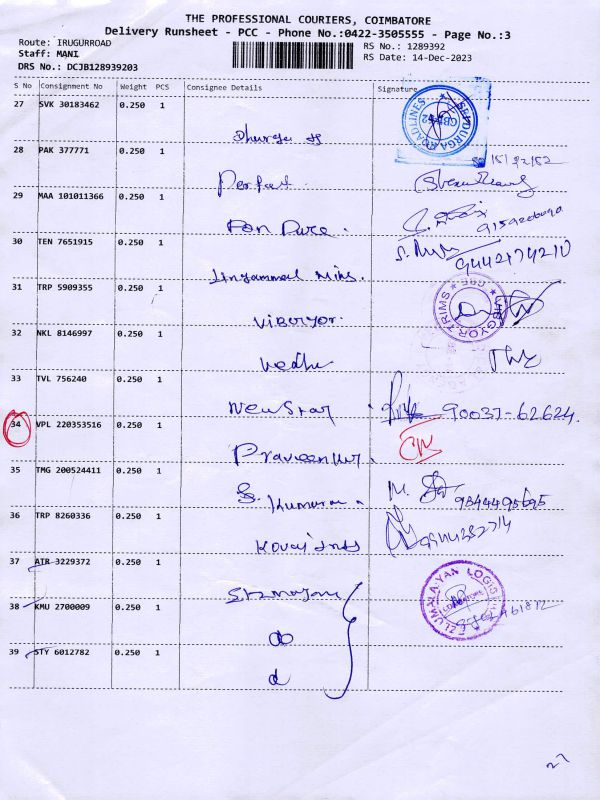 THE PROFESSIONAL COURIERS, COIMBATORE
Delivery Runsheet - PCC - Phone No.:0422-3505555 - Page No.:3
Route: IRUGURROAD
RS No.: 1289392
Staff: MANI
RS Date: 14-Dec-2023
DRS No.: DCJB128939203
S No Consignment No Weight PCS Consignee Details Signature
27 SVK 30183462 0.250 1
Dhurga
28 PAK 377771 0.250 1
Perfact
29 MAA 101011366 0.250 1
Pon Pure.
30 TEN 7651915 0.250 1
Lingammal Mills.
9442174210
31 TRP 5909355 0.250 1
Vibgyor.
32 NKL 8146997 0.250 1
Vedha
33 TVL 756240 0.250 1
New Star 90037-62624.
34 VPL 220353516 0.250 1
Praveenkur.
35 TMG 200524411 0.250 1
S. Kumaran
36 TRP 8260336 0.250 1
Kovai
37 ATR 3229372 0.250 1
38 KMU 2700009 0.250 1
do
39 STY 6012782 0.250 1
d
27